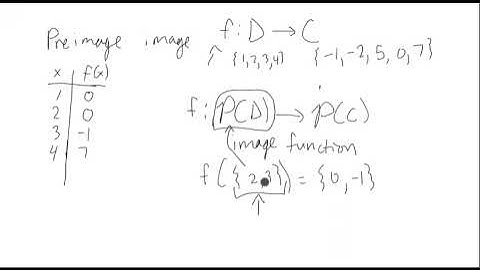 Preimage image f: D → C
{1,2,3,4} {-1,-2,5,0,7}
x f(x)
1 0
2 0
3 -1
4 7
f: P(D) → P(C)
image function
f({2,3}) = {0,-1}